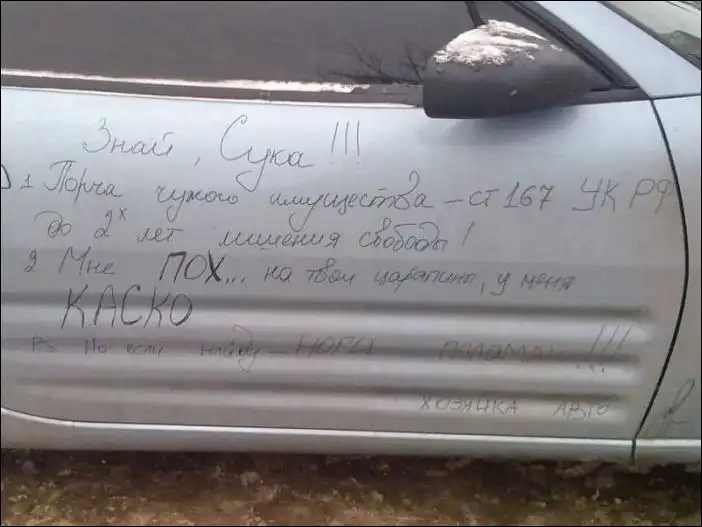 Знай, Сука!!!
1 Порча чужого имущества – ст 167 УК РФ
до 2х лет лишения свободы!
2 Мне ПОХ... на твои царапины, у меня
КАСКО
PS Но если найду – НОГИ ПОЛОМАЮ!!!
ХОЗЯЙКА АВТО